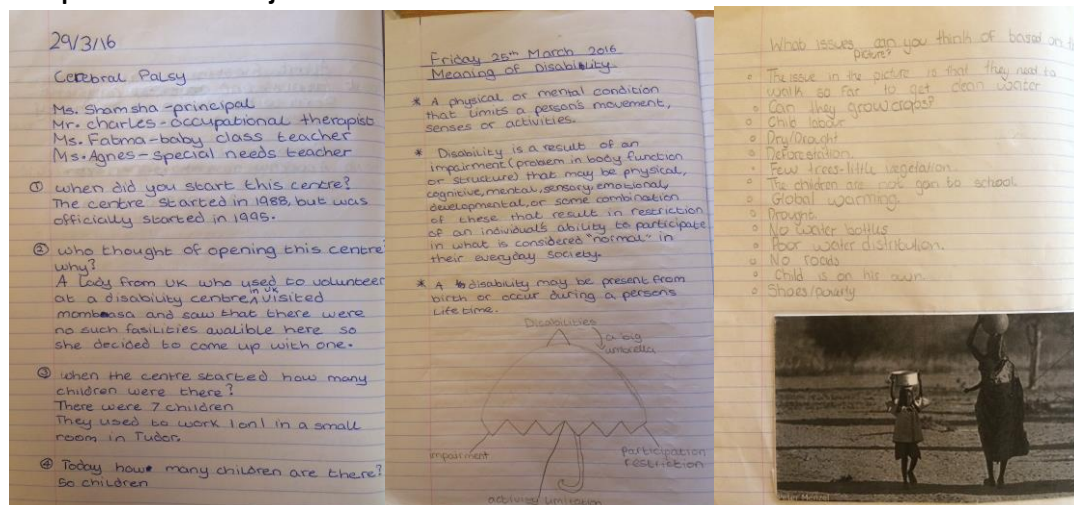 29/3/16
Cerebral Palsy
Ms. Shamsha - principal
Mr. charles - occupational therapist
Ms. Fatma - baby class teacher
Ms. Agnes - special needs teacher
① when did you start this centre?
The centre started in 1988, but was
officially started in 1995.
② who thought of opening this centre?
why?
A Lady from UK who used to volunteer
at a disability centre in UK visited
mombasa and saw that there were
no such fasilities avalible here so
she decided to come up with one.
③ when the centre started how many
children were there?
There were 7 children
They used to work 1 on 1 in a small
room in Tudor.
④ Today how many children are there?
50 children
Friday 25th March 2016
Meaning of Disability.
* A physical or mental condition
that limits a person's movement,
senses or activities.
* Disability is a result of an
impairment (problem in body function
or structure) that may be physical,
cognitive, mental, sensory, emotional,
developmental, or some combination
of these that result in restriction
of an individual's ability to participate
in what is considered "normal" in
their everyday society.
* A disability may be present from
birth or occur during a person's
Life time.
Disabilities
a big
umbrella
impairment
Participation
restriction
activity limitation
What issues can you think of based on
picture?
The issue in the picture is that they need to
walk so far to get clean water
Can they grow crops?
Child labour
Dry/Drought
Deforestation
Few trees - little vegetation.
The children are not to school
Global warming
Drought
No water bottles
Poor water distribution.
No roads
Child is on his own
Shoes/poverty